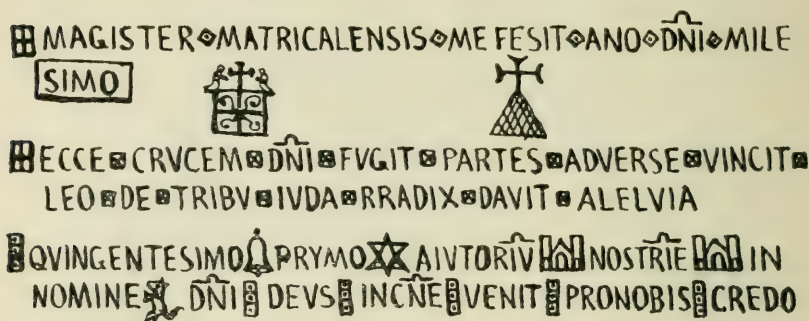 MAGISTER MATRICALENSIS ME FESIT ANO DN̄I MILE
SIMO
ECCE CRVCEM DN̄I FVGIT PARTES ADVERSE VINCIT
LEO DE TRIBV IVDA RRADIX DAVIT ALELVIA
QVINGENTESIMO PRYMO AIVTORIV̄ NOSTRĪE IN
NOMINE DN̄I DEVS INCN̄E VENIT PRONOBIS CREDO